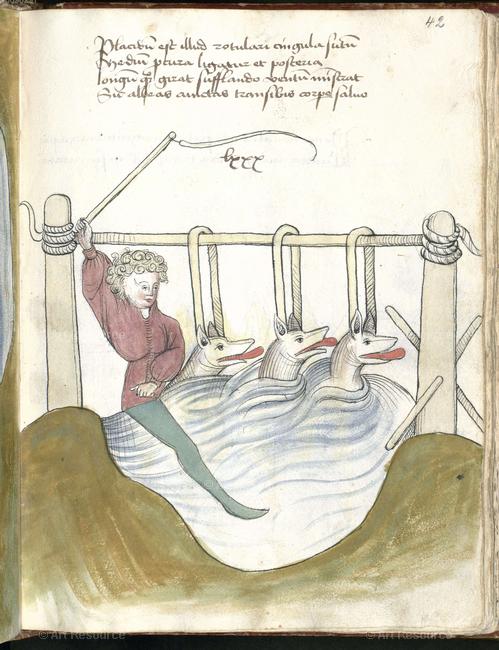 42
Placidum est illud rotulari cingula sutum
Rhedium p cura ligatur et posteria
longum qz girat sufflando ventum mistrat
Sic altas aquas transibis corpe saluo
lxxx
© Art Resource
© Art Resource